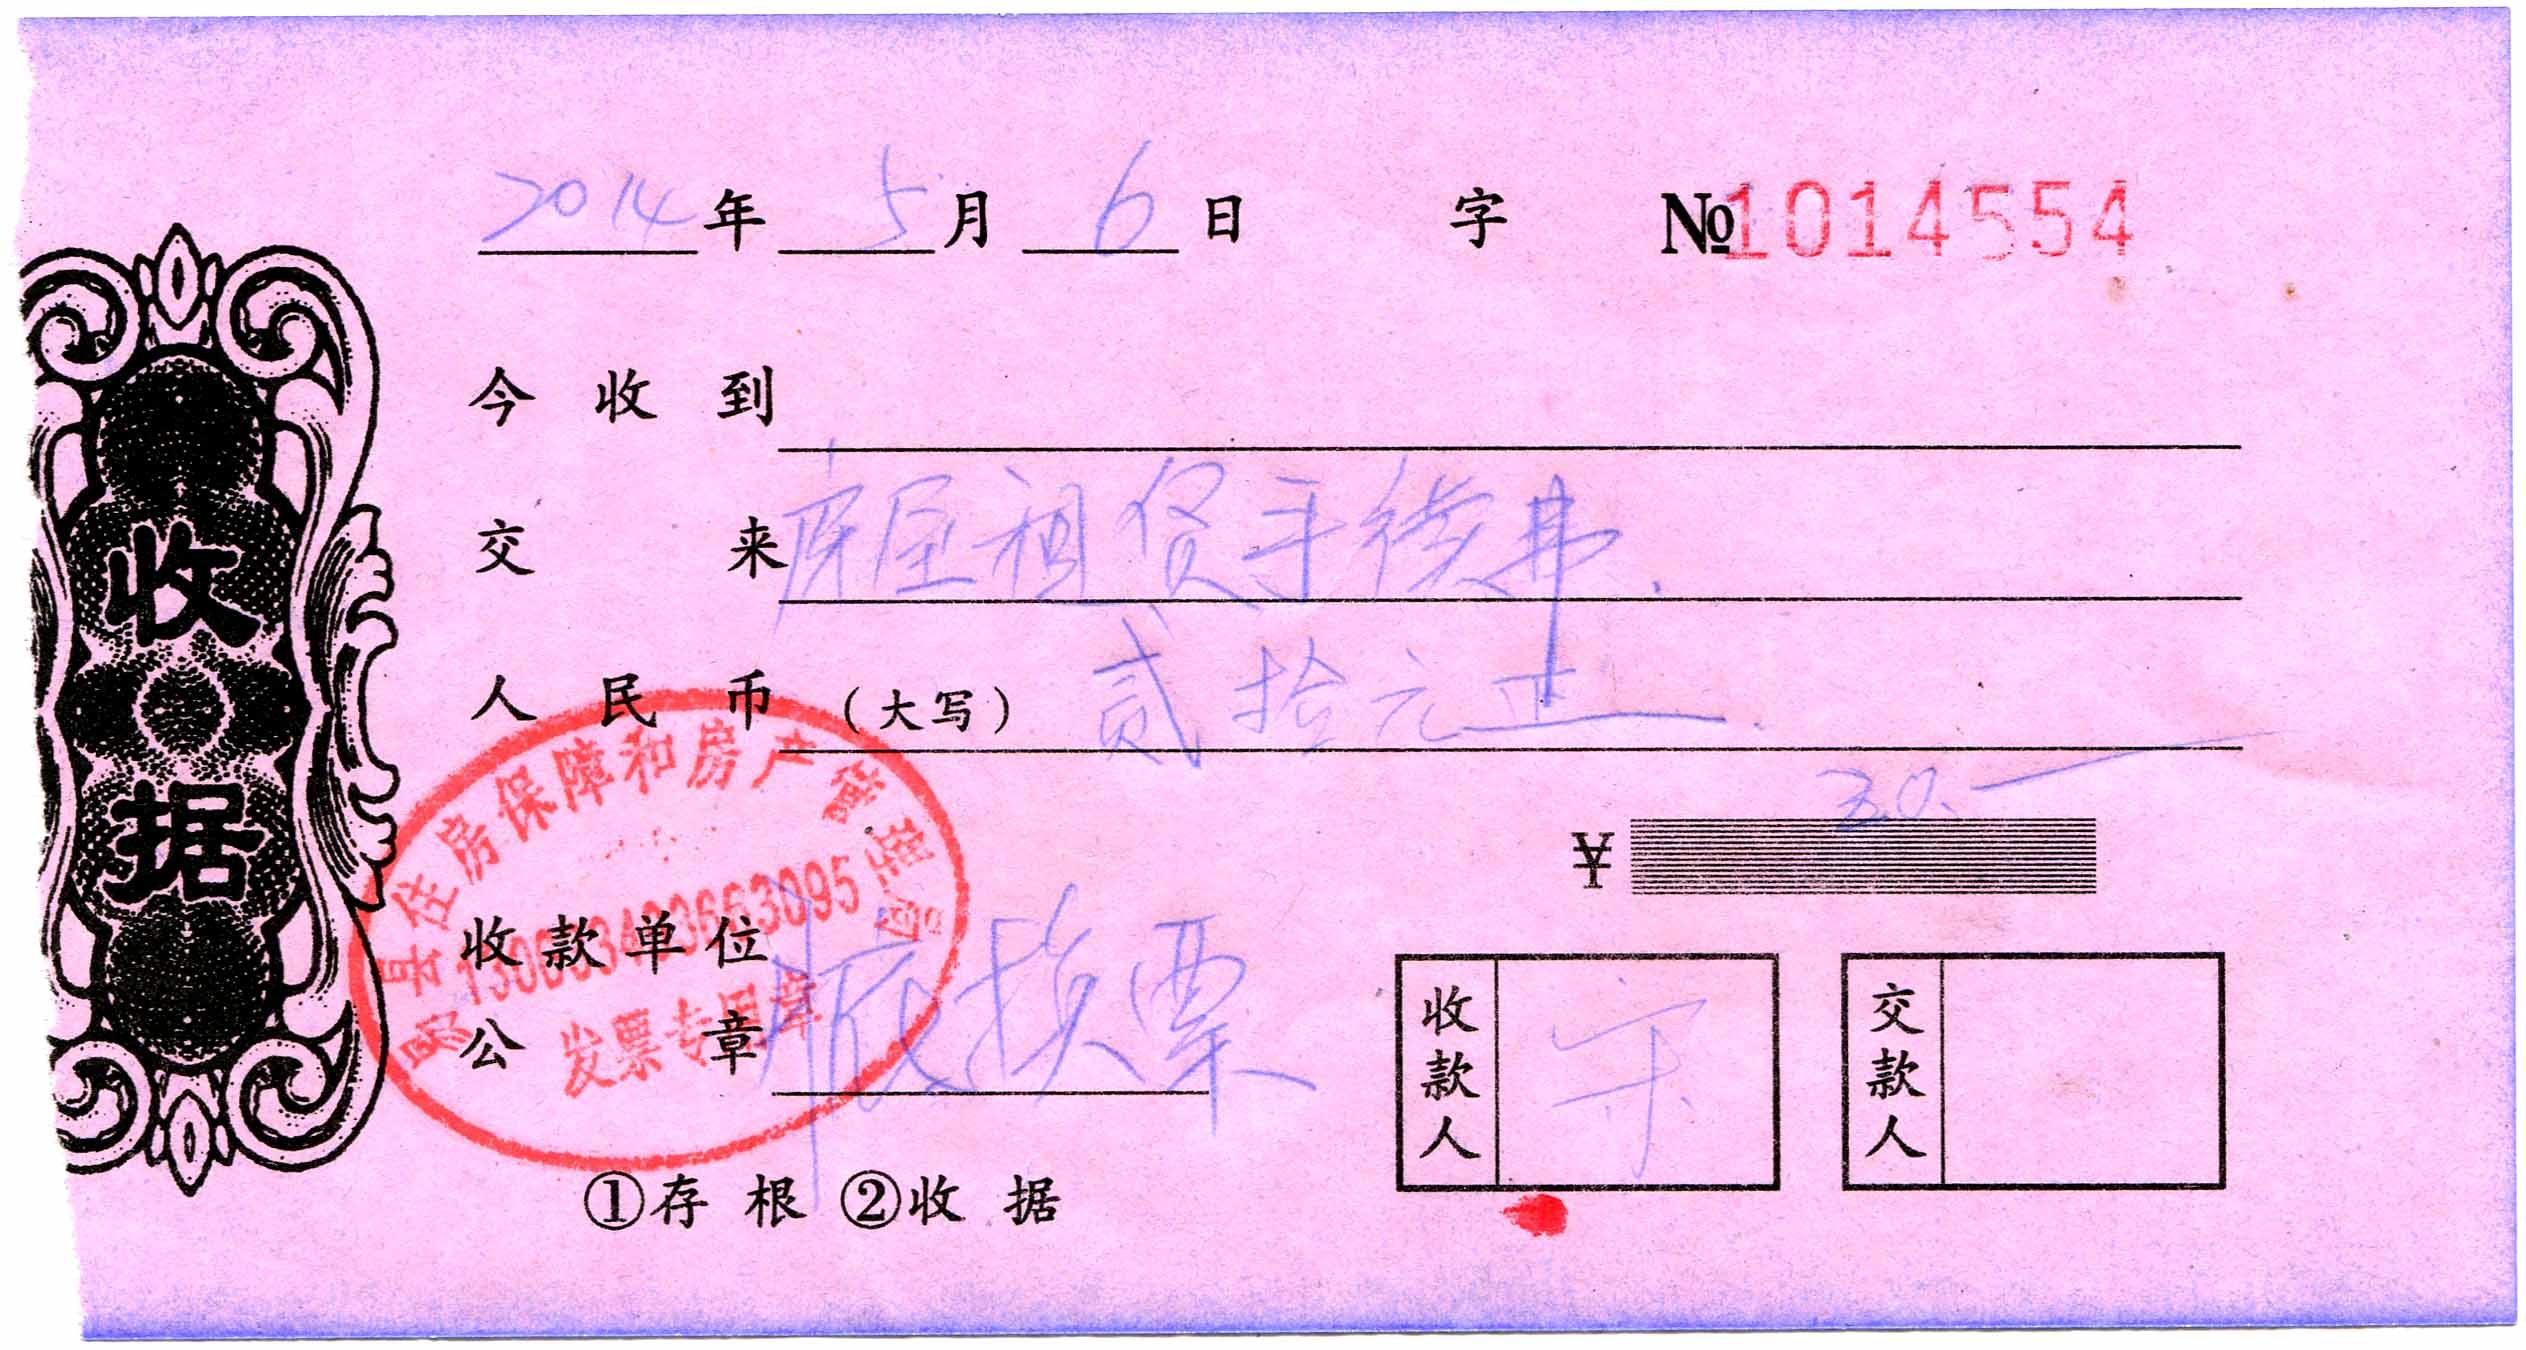 2014年 5月 6日 字 №1014554
今收到
交来 房屋租赁手续费.
人民币(大写) 贰拾元正
¥ 20.—
收据
县住房保障和房产管理局
发票专用章
收款单位
公章 换票
收款人 宋
交款人
①存根 ②收据